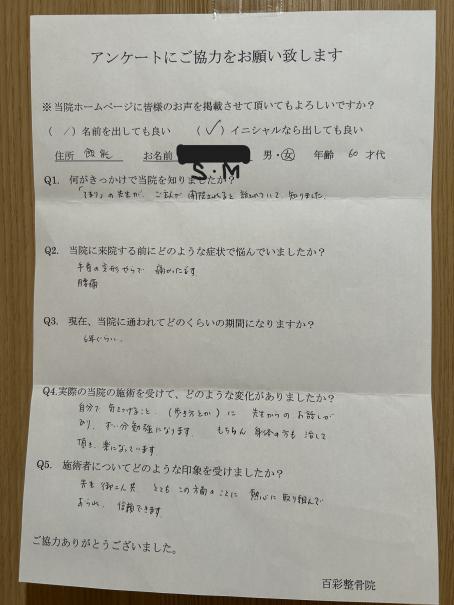 アンケートにご協力をお願い致します
※当院ホームページに皆様のお声を掲載させて頂いてもよろしいですか？
( / ) 名前を出しても良い ( ✓ ) イニシャルなら出しても良い
住所 飯能 お名前 S・M 男・女 年齢 60 才代
Q1. 何がきっかけで当院を知りましたか？
の先生が、 開院されると 知りました。
Q2. 当院に来院する前にどのような症状で悩んでいましたか？
半身の変形 痛かったです
腰痛
Q3. 現在、当院に通われてどのくらいの期間になりますか？
6年ぐらい
Q4.実際の当院の施術を受けて、どのような変化がありましたか？
自分で 気をつけること (歩き方とか) に 先生からの お話しが
あり、ずい分勉強になります。 もちろん 身体の方も 治して
頂き、楽になっています
Q5. 施術者についてどのような印象を受けましたか？
先生 御二人共 とても この方面のことに 熱心に取り組んで
おられ、信頼できます
ご協力ありがとうございました。
百彩整骨院